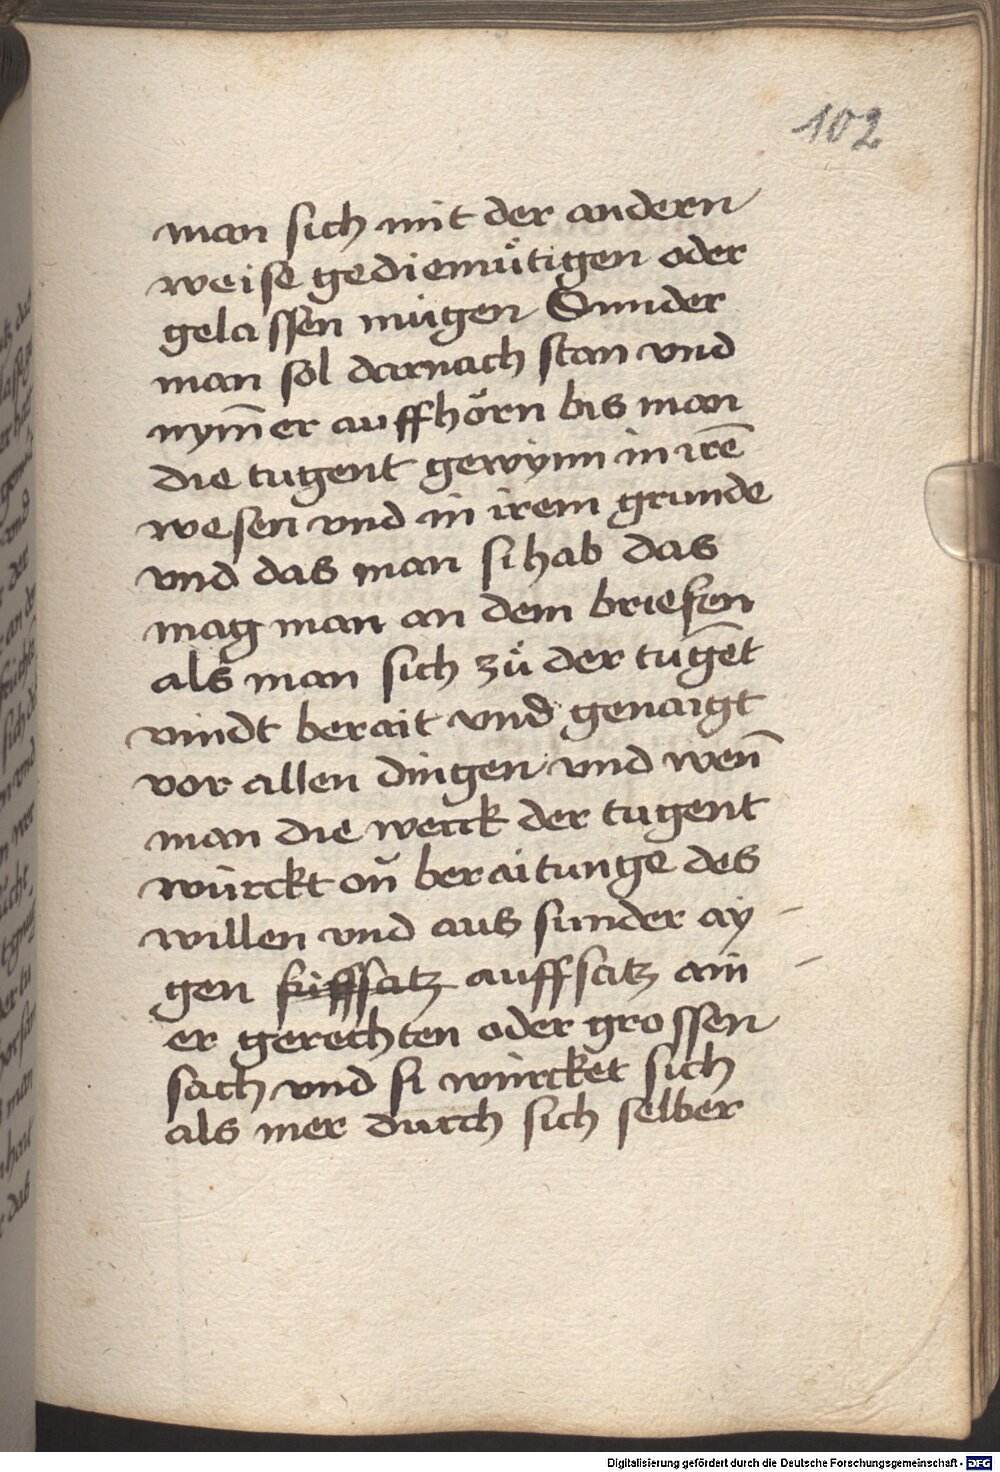 102
man sich mit der andern
weise gediemuͤtigen oder
gelassen mügen Sunder
man sol darnach stan vnd
nym̄er auffhörn bis man
die tugent gewynn in irē
wesen vnd in irem grunde
vnd das man si hab das
mag man an dem briefen
als man sich zuͤ der tugēt
vindt berait vnd genaigt
vor allen dingen vnd wen̄
man die werck der tugent
würckt on̄ beraitunge des
willen vnd aus sunder ay
gen auffsatz ain
er gerechten oder grossen
sach vnd si würcket sich
als mer durch sich selber
Digitalisierung gefördert durch die Deutsche Forschungsgemeinschaft - DFG